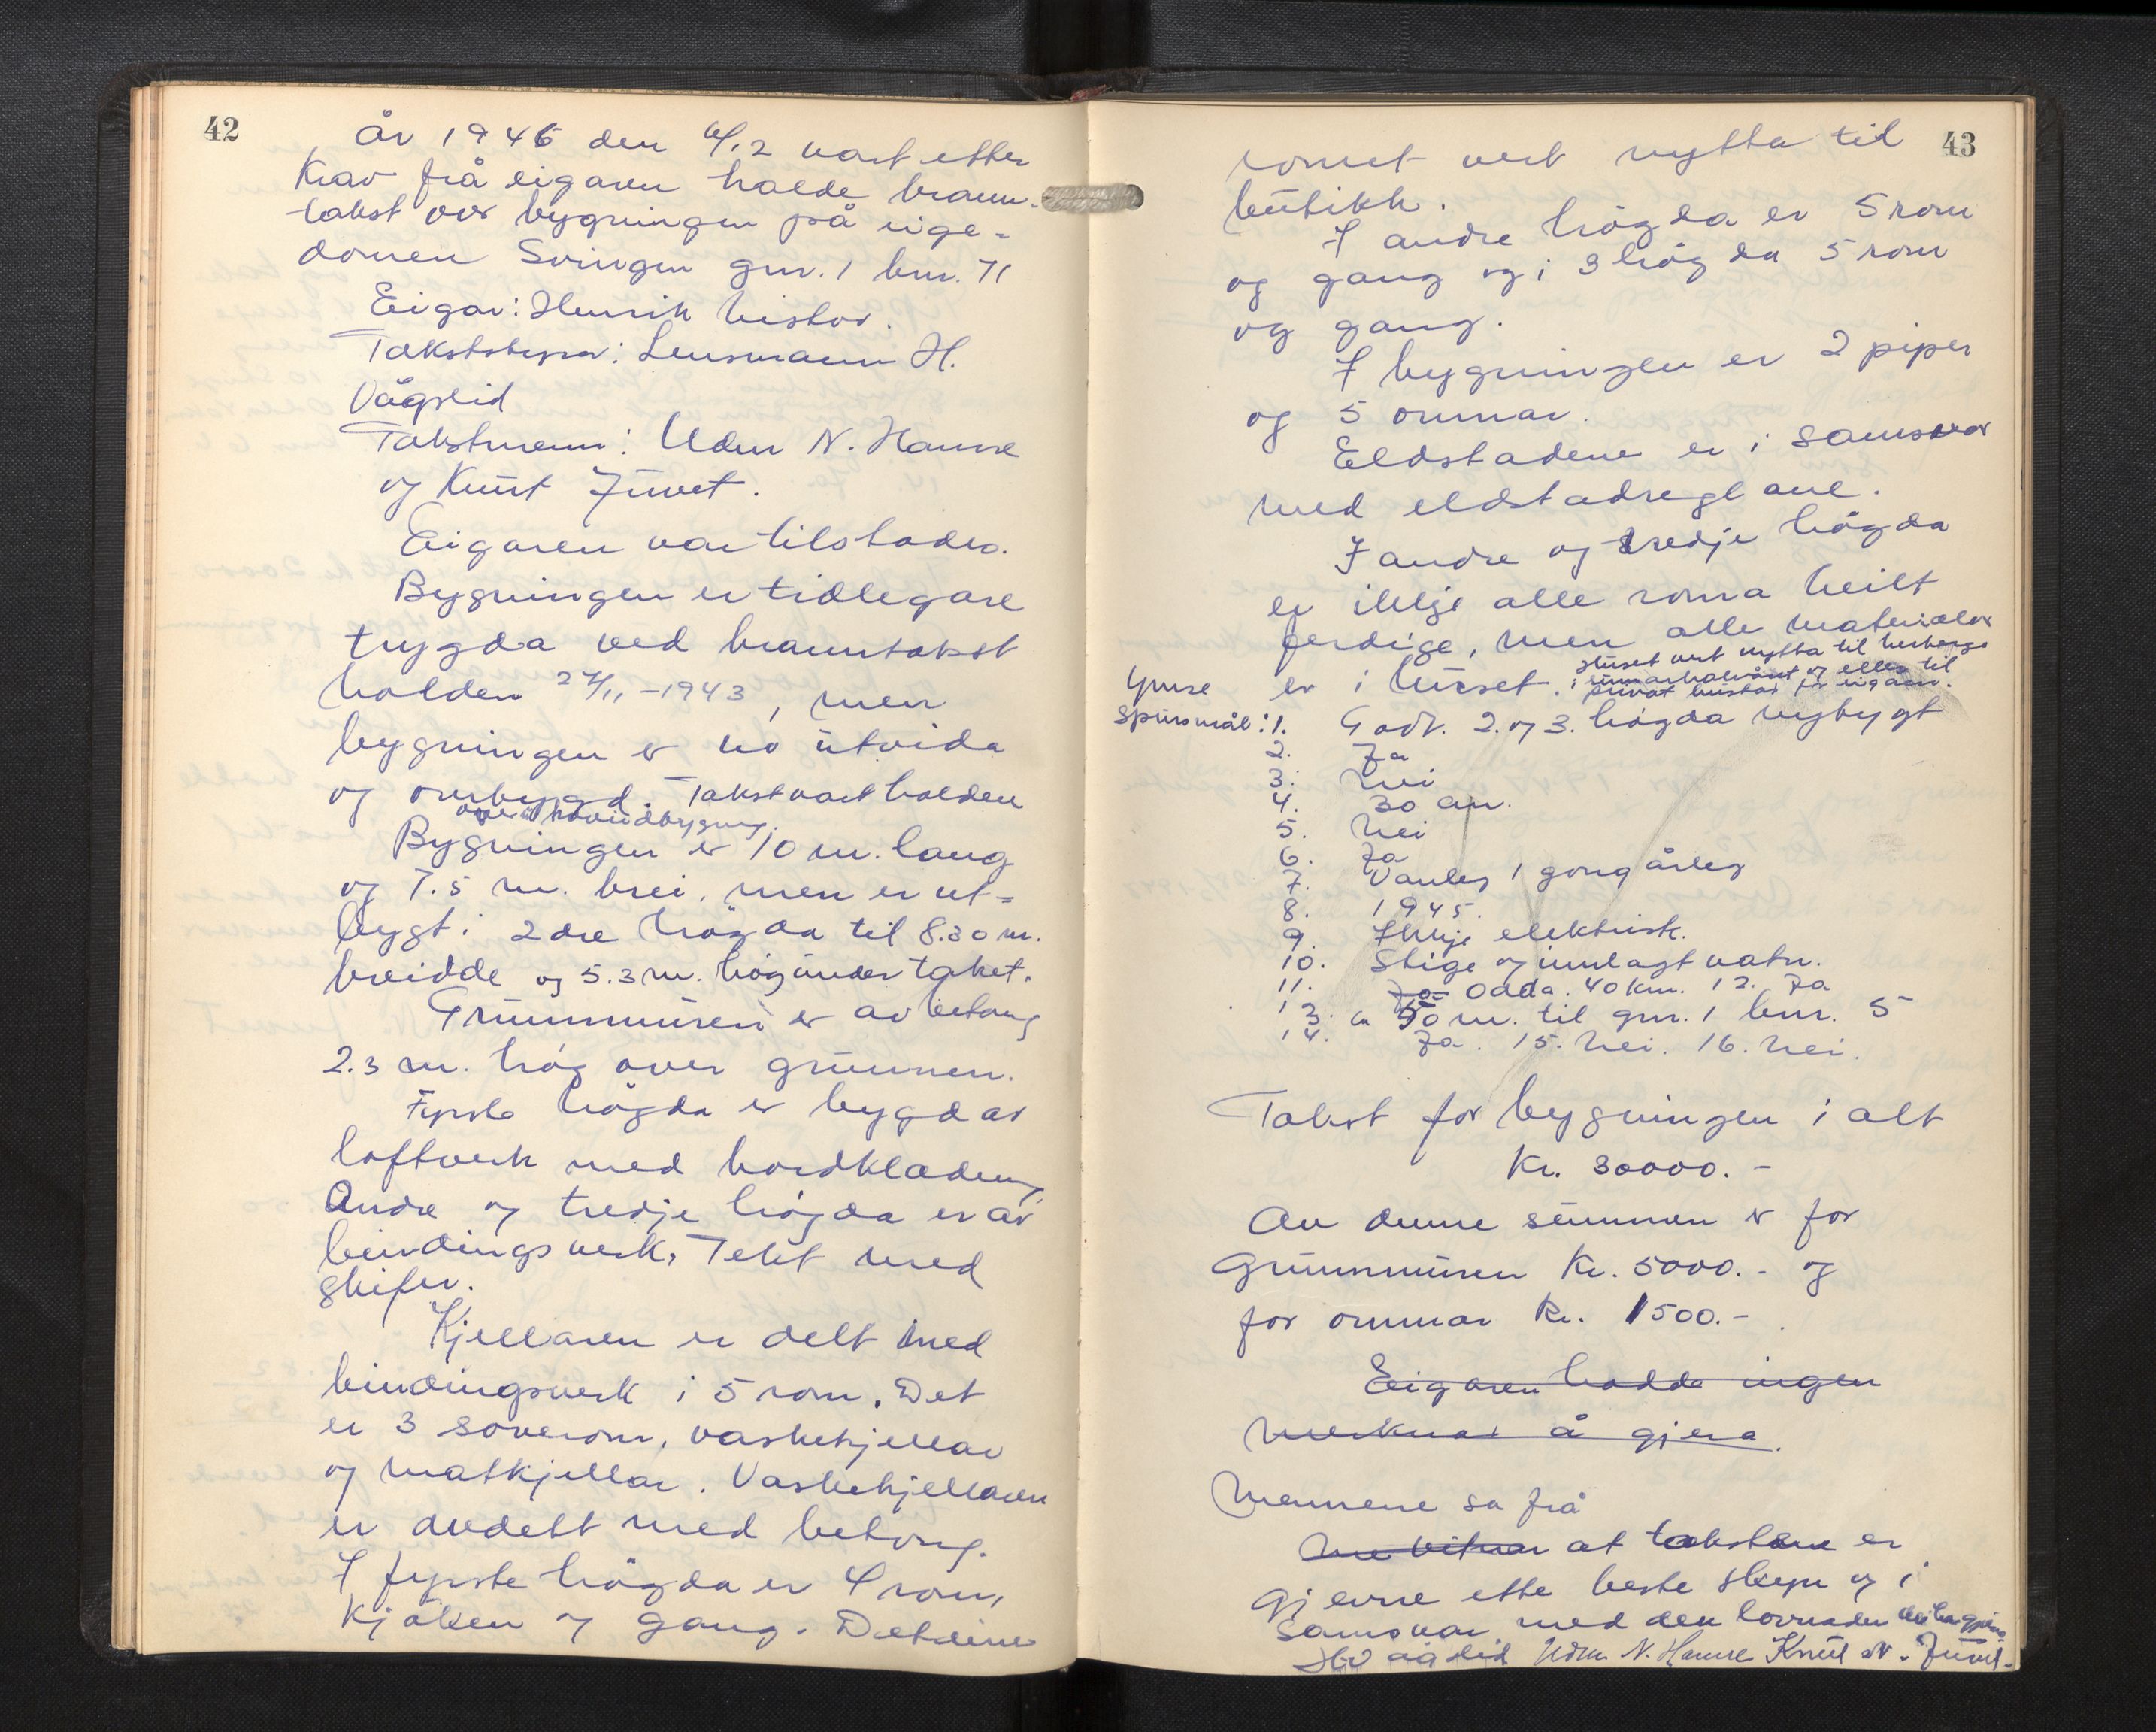 42
År 1946 den 6/12 vart etter
Krav frå eigaren halde brann-
takst over bygningen på eige-
domen Svingen gnr. 1 bnr. 71
Eigar: Henrik
Takststyrar: Lensmann H.
Vågslid
Takstmenn: N. Hamre
og Knut Juvet.
Eigaren var tilstades.
Bygningen er tidlegare
trygda ved branntakst
halden 27/11-1943, men
bygningen er no utvida
og ombygd. Takst vart halden
over hovudbygning.
Bygningen er 10 m. lang
og 7.5 m. brei, men er ut-
bygt i 2dre högda til 8.30 m.
breidde og 5.3 m. hög under taket.
Grunnmuren er av betong
2.3 m. hög over grunnen.
Fyrste högda er bygd av
loftverk med bordklædning
Andre og tredje högda er av
bindingsverk. Tekt med
skifer.
Kjellaren er delt med
bindingsverk i 5 rom. Det
er 3 soverom, vaskekjellar
og matkjellar. Vaskekjellaren
er avdelt med betong.
I fyrste högda er 4 rom,
kjöken og gang. Det eine
43
romet vert nytta til
butikk.
I andre högda er 5 rom
og gang og i 3 högda 5 rom
og gang.
I bygningen er 2 piper
og 5 omnar.
Eldstadene er i samsvar
med eldstadreglane.
I andre og tredje högda
er ikkje alle roma heilt
ferdige, men alle materialer
er i huset. Huset vert nytta til herberge
i sumarhalvåret og elles til
privat bustad for eigaren.
Ymse
spursmål: 1. Godt. 2. og 3. högda nybygt
2. Ja
3. Nei
4. 30 cm.
5. Nei
6. Ja
7. Vanleg 1 gong årleg
8. 1945.
9. Ikkje elektrisk.
10. Stige og innlagt vatn.
11. Ja Odda. 40 km. 12. Ja
13. ca 50 m. til gnr. 1 bnr. 5
14. Ja. 15. Nei. 16. Nei.
Takst for bygningen i alt
Kr. 30000.-
Av denne summen er for
Grunnmuren Kr. 5000.- og
for omnar Kr. 1500.-
Eigaren hadde ingen
merknad å gjera.
Mennene sa frå
Me vitnar at takstene er
gjevne ette beste skjyn og i
samsvar med den lovnaden dei har gjeve
HVågslid N. Hamre Knut N. Juvet.